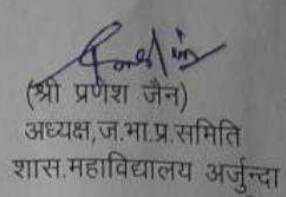 (श्री प्रणेश जैन)
अध्यक्ष,ज.भा.प्र.समिति
शास.महाविद्यालय अर्जुन्दा